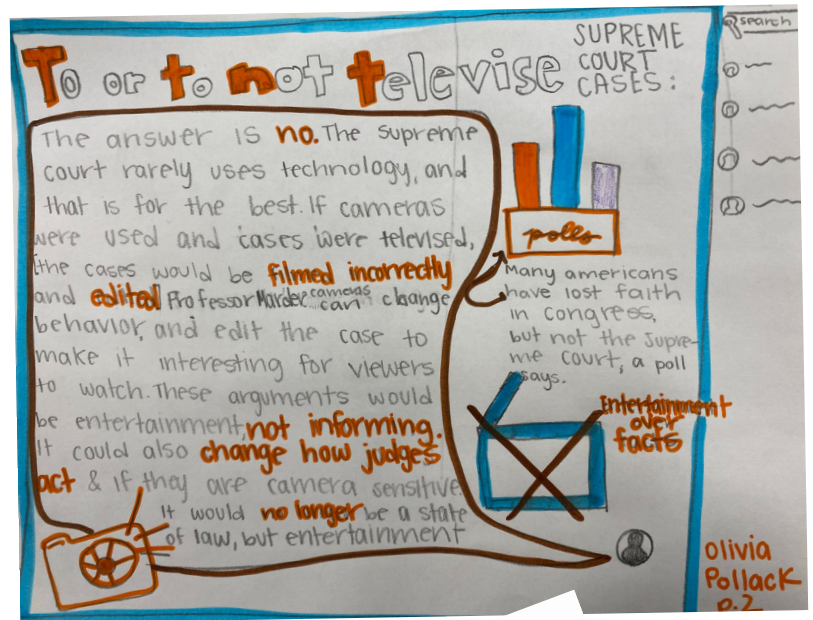 To or to not televise
SUPREME
COURT
CASES:
The answer is no. The supreme
court rarely uses technology, and
that is for the best. If cameras
were used and cases were televised,
the cases would be filmed incorrectly
and edited Professor Marder cameras can change
behavior, and edit the case to
make it interesting for viewers
to watch. These arguments would
be entertainment, not informing.
It could also change how judges
act & if they are camera sensitive.
It would no longer be a state
of law, but entertainment
polls
Many americans
have lost faith
in congress,
but not the Supre-
me court, a poll
says.
Entertainment
over
facts
search
olivia
Pollack
p.2